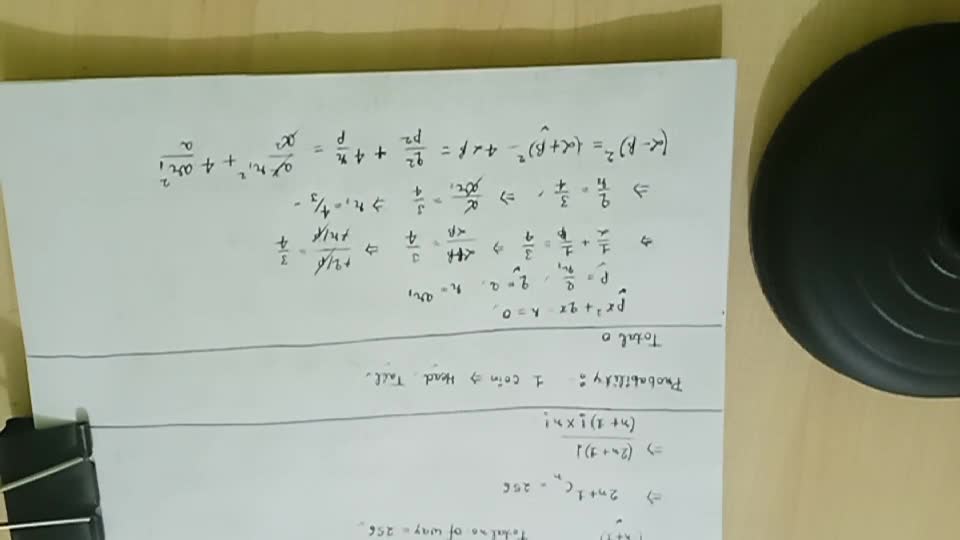 Total no of way = 256.
⇒ 2n+1 Cₙ = 256
⇒ (2n+1)! / (n+1)! × n!
Probability : 1 coin ⇒ Head, Tail.
Total 0
px² + qx - r = 0,
p = a/r₁, q = a, r = ar₁
⇒ 1/α + 1/β = 3/4 ⇒ α+β/αβ = 3/4 ⇒ +q/p / +r/p = 3/4
⇒ q/r = 3/4, ⇒ a/ar₁ = 3/4 ⇒ r₁ = 4/3
(α-β)² = (α+β)² - 4αβ = q²/p² + 4 r/p = a²r₁²/a² + 4 ar₁²/a